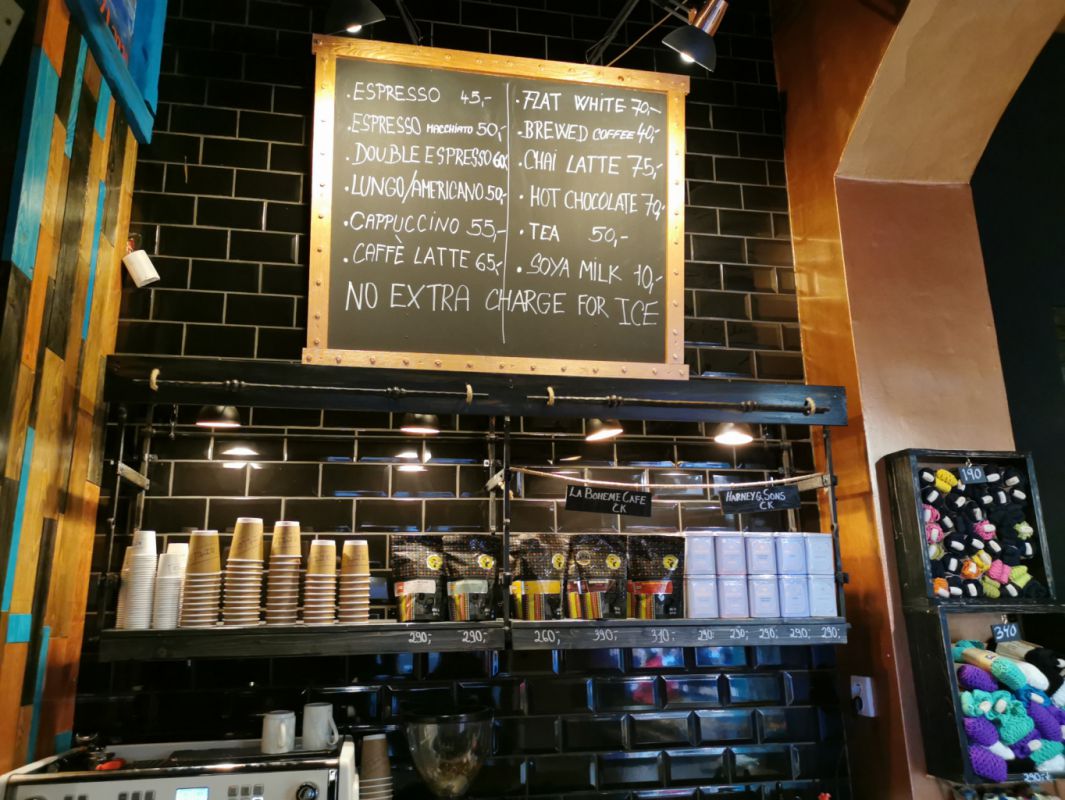 ESPRESSO 45,-
ESPRESSO MACCHIATO 50,-
DOUBLE ESPRESSO 60,-
LUNGO/AMERICANO 50,-
CAPPUCCINO 55,-
CAFFÈ LATTE 65,-
FLAT WHITE 70,-
BREWED COFFEE 40,-
CHAI LATTE 75,-
HOT CHOCOLATE 70,-
TEA 50,-
SOYA MILK 10,-
NO EXTRA CHARGE FOR ICE
LA BOHEME CAFE
CK
HARNEY & SONS
CK
290,- 290,- 260,- 390,- 310,- 290,- 290,- 290,- 290,- 290,-
190
340
290,-